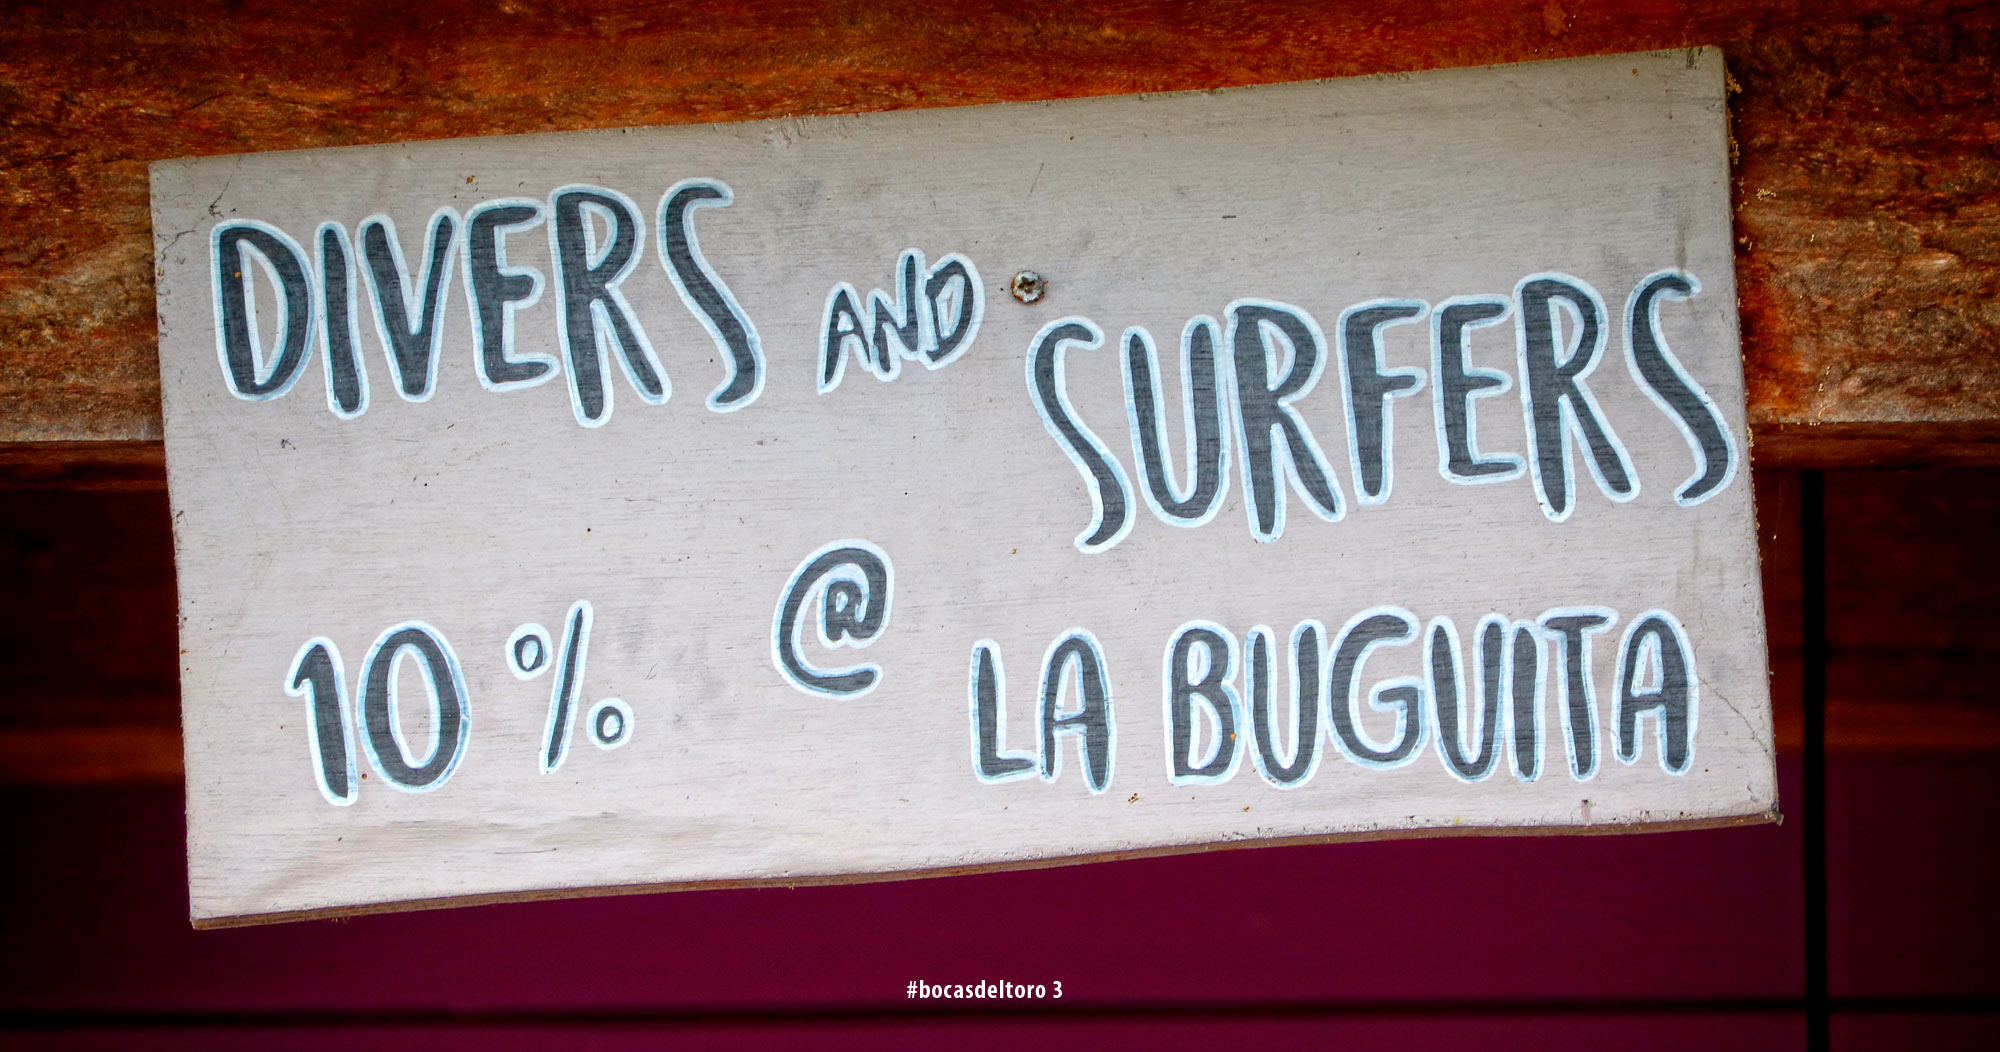 DIVERS AND SURFERS
10% @ LA BUGUITA
#bocasdeltoro 3